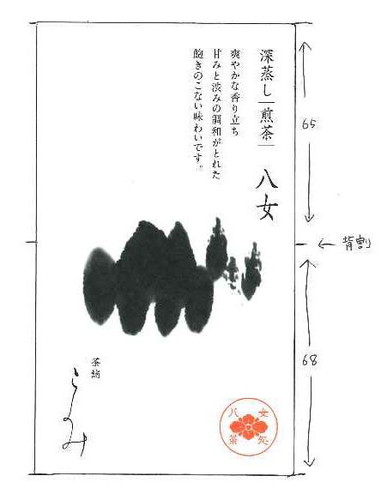 深蒸し｜煎茶｜
八女
爽やかな香り立ち
甘みと渋みの調和がとれた
飽きのこない味わいです。
65
← 背割
68
茶舗
このみ
八女
茶処